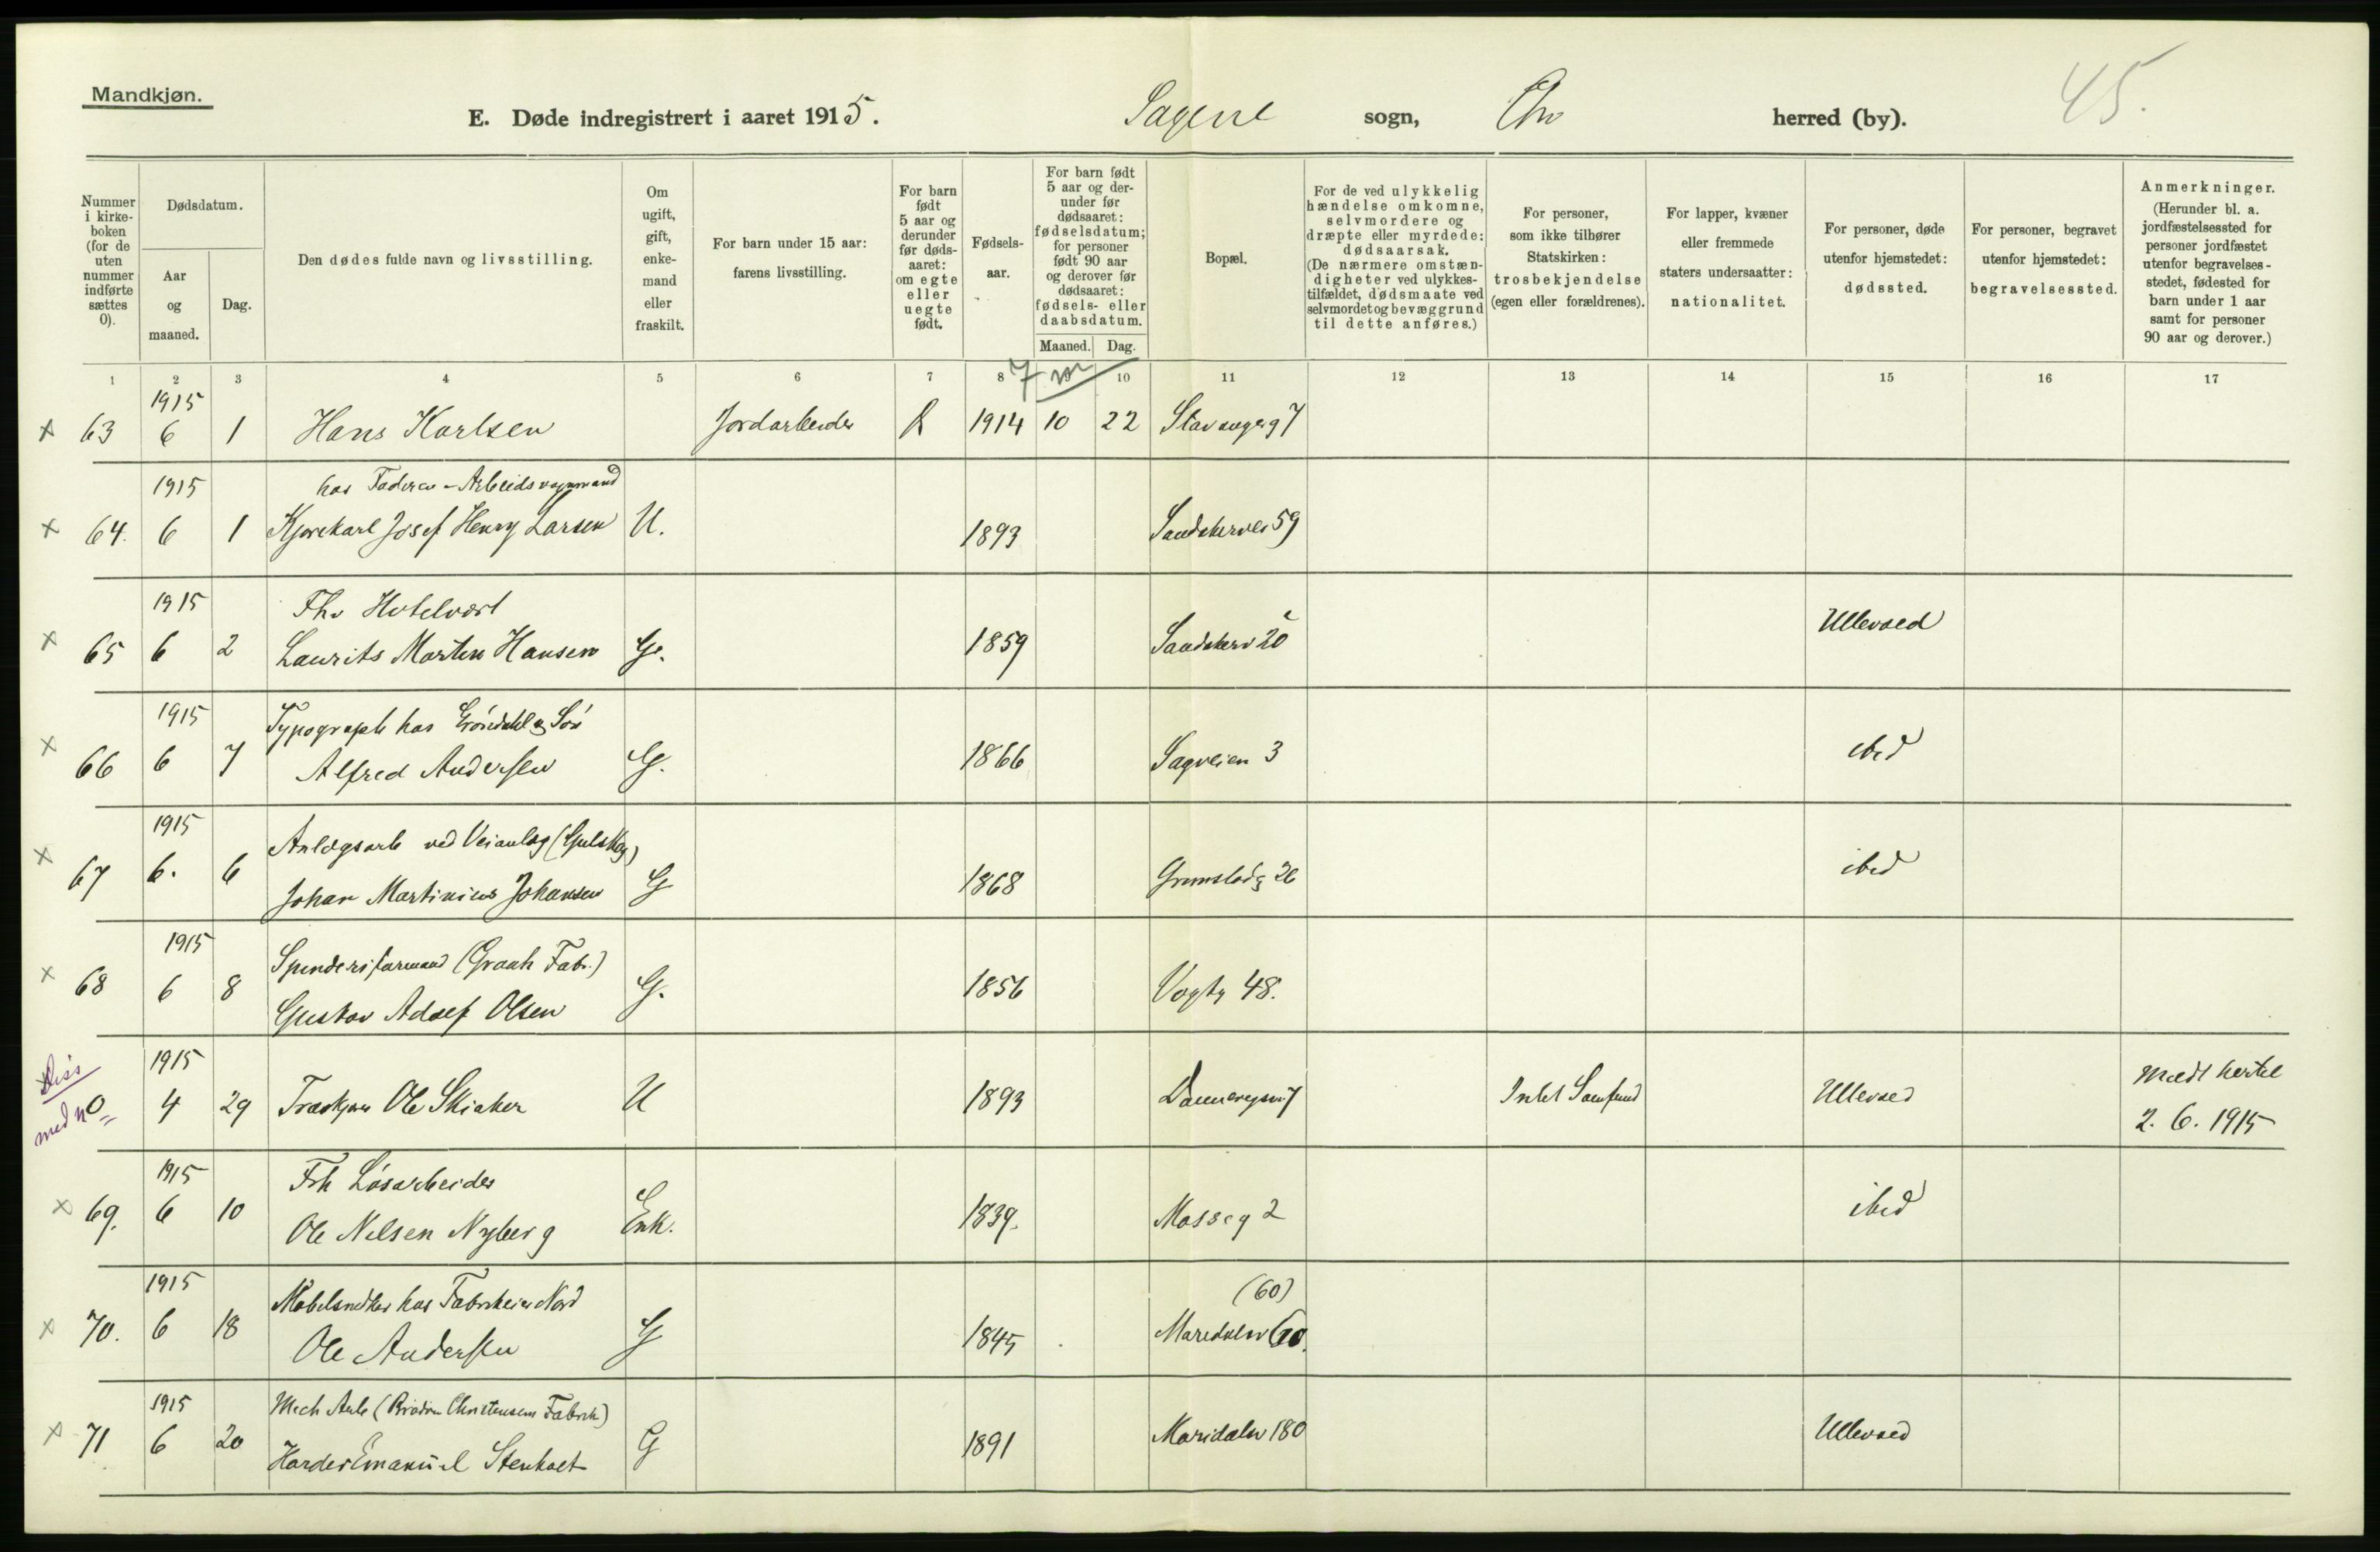 Mandkjøn.
E. Døde indregistrert i aaret 1915. Sagene sogn, Chr herred (by). 45.
Nummer i kirke-boken (for de uten nummer indførte sættes 0).
Dødsdatum.
Aar og maaned.
Dag.
Den dødes fulde navn og livsstilling.
Om ugift, gift, enke-mand eller fraskilt.
For barn under 15 aar: farens livsstilling.
For barn født 5 aar og derunder før døds-aaret: om egte eller uegte født.
Fødsels-aar.
For barn født 5 aar og der-under før dødsaaret: fødselsdatum; for personer født 90 aar og derover før dødsaaret: fødsels- eller daabsdatum.
Maaned. Dag.
Bopæl.
For de ved ulykkelig hændelse omkomne, selvmordere og dræpte eller myrdede: dødsaarsak. (De nærmere omstæn-digheter ved ulykkes-tilfældet, dødsmaate ved selvmordet og bevæggrund til dette anføres.)
For personer, som ikke tilhører Statskirken: trosbekjendelse (egen eller forældrenes).
For lapper, kvæner eller fremmede staters undersaatter: nationalitet.
For personer, døde utenfor hjemstedet: dødssted.
For personer, begravet utenfor hjemstedet: begravelsessted.
Anmerkninger. (Herunder bl. a. jordfæstelsessted for personer jordfæstet utenfor begravelses-stedet, fødested for barn under 1 aar samt for personer 90 aar og derover.)
1 2 3 4 5 6 7 8 9 10 11 12 13 14 15 16 17
7 m
1915
x 63 6 1 Hans Karlsen Jordarbeider 1914 10 22 Stavangerg 7
1915 hos Faderen - Arbeidsvognmand
x 64. 6 1 Kjørekarl Josef Henry Larsen U. 1893 Sandakervei 59
1915 Fhv Hotelvært
x 65 6 2 Laurits Martin Hansen G. 1859 Sandakerv 20 Ullevaal
1915 Typograph hos Grøndahl & Søn
x 66 6 7 Alfred Andersen G. 1866 Sagveien 3 ibid
1915 Anlægsarb ved Veianlæg
x 67 6. 6 Johan Martinius Johansen G 1868 Grimstadg 26 ibid
1915 Spinderiformand (Graah Fabr.)
x 68 6 8 Gustav Adolf Olsen G. 1856 Vogtsg 48.
Diss
med no
1915
0 4 29 Ole Skiaker U 1893 Intet Samfund Ullevaal Meldt hertil
2. 6. 1915
1915 Fhv Løsarbeider
x 69. 6 10 Ole Nilsen Nyberg Enk. 1839. Mosseg 2 ibid
1915 Møbelsnedker hos Fabrikeier Nord (60)
x 70. 6 18 Ole Andersen G 1845 Maridalsv 60.
1915 Mech Arb (Brødr Christensens Fabrik)
x 71 6 20 Harder Emanuel Stenholt G 1891 Maridalsv 180 Ullevaal